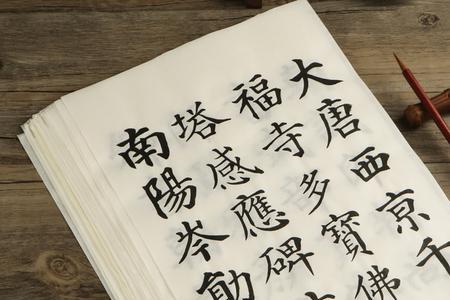 大唐西京千
福寺多寶佛
塔感應碑
南陽岑